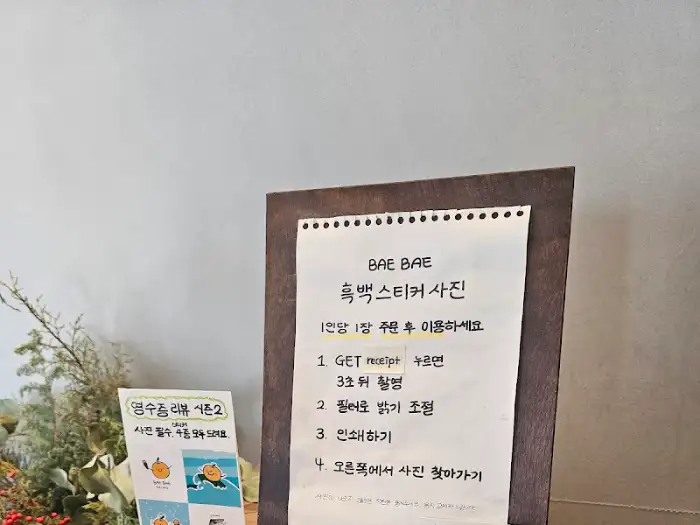 BAE BAE
흑백스티커사진
1인당 1장 주문 후 이용하세요
1. GET receipt 누르면
3초 뒤 촬영
2. 필터로 밝기 조절
3. 인쇄하기
4. 오른쪽에서 사진 찾아가기
영수증 리뷰 시즌2
사진 필수, 4종 모두 드려요.
BAE BAE